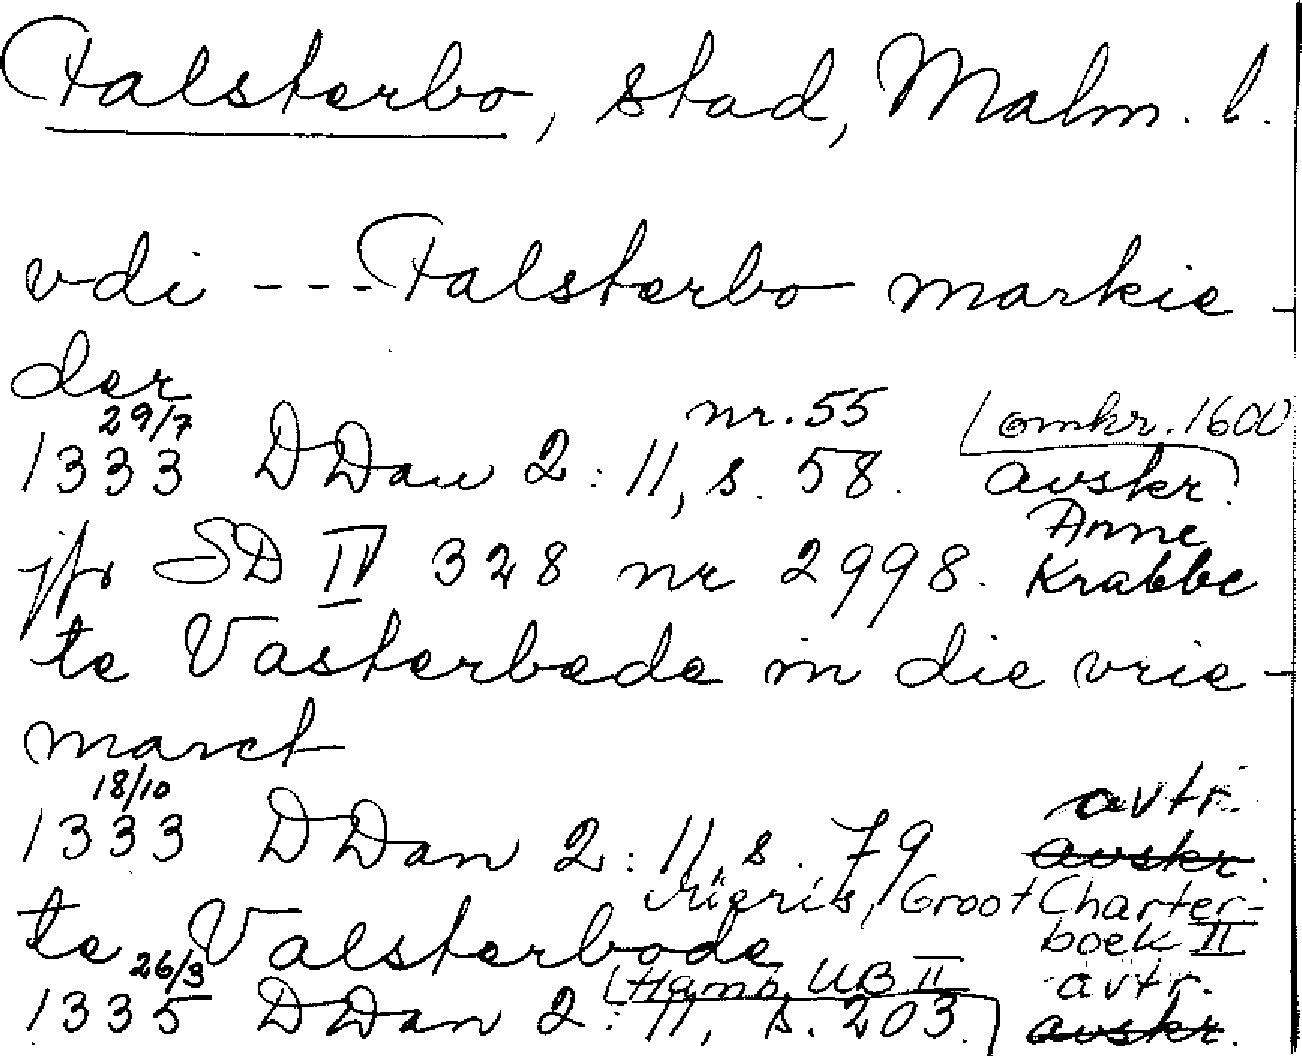 Falsterbo, stad, Malm. l.
vdi --- Falsterbo markie-
der
29/7 nr. 55 omkr. 1600
1333 DDan 2: 11, s. 58. avskr.
Anne
jfr SD IV 328 nr 2998. Krabbe
te Vasterbode in die vrie-
marct
18/10 avtr.
1333 DDan 2: 11, s. 79 avskr.
Mieris, Groot Charter-
te Valsterbode boek II
26/3 Hamb. UB II avtr.
1335 DDan 2: 11, s. 203. avskr.